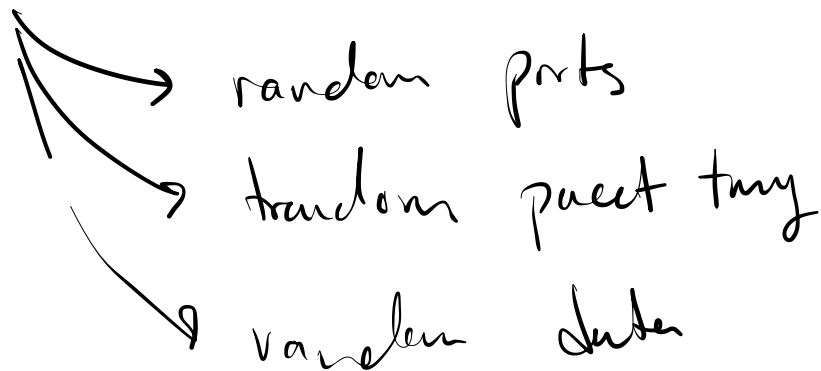 random ports
random packet timing
random data